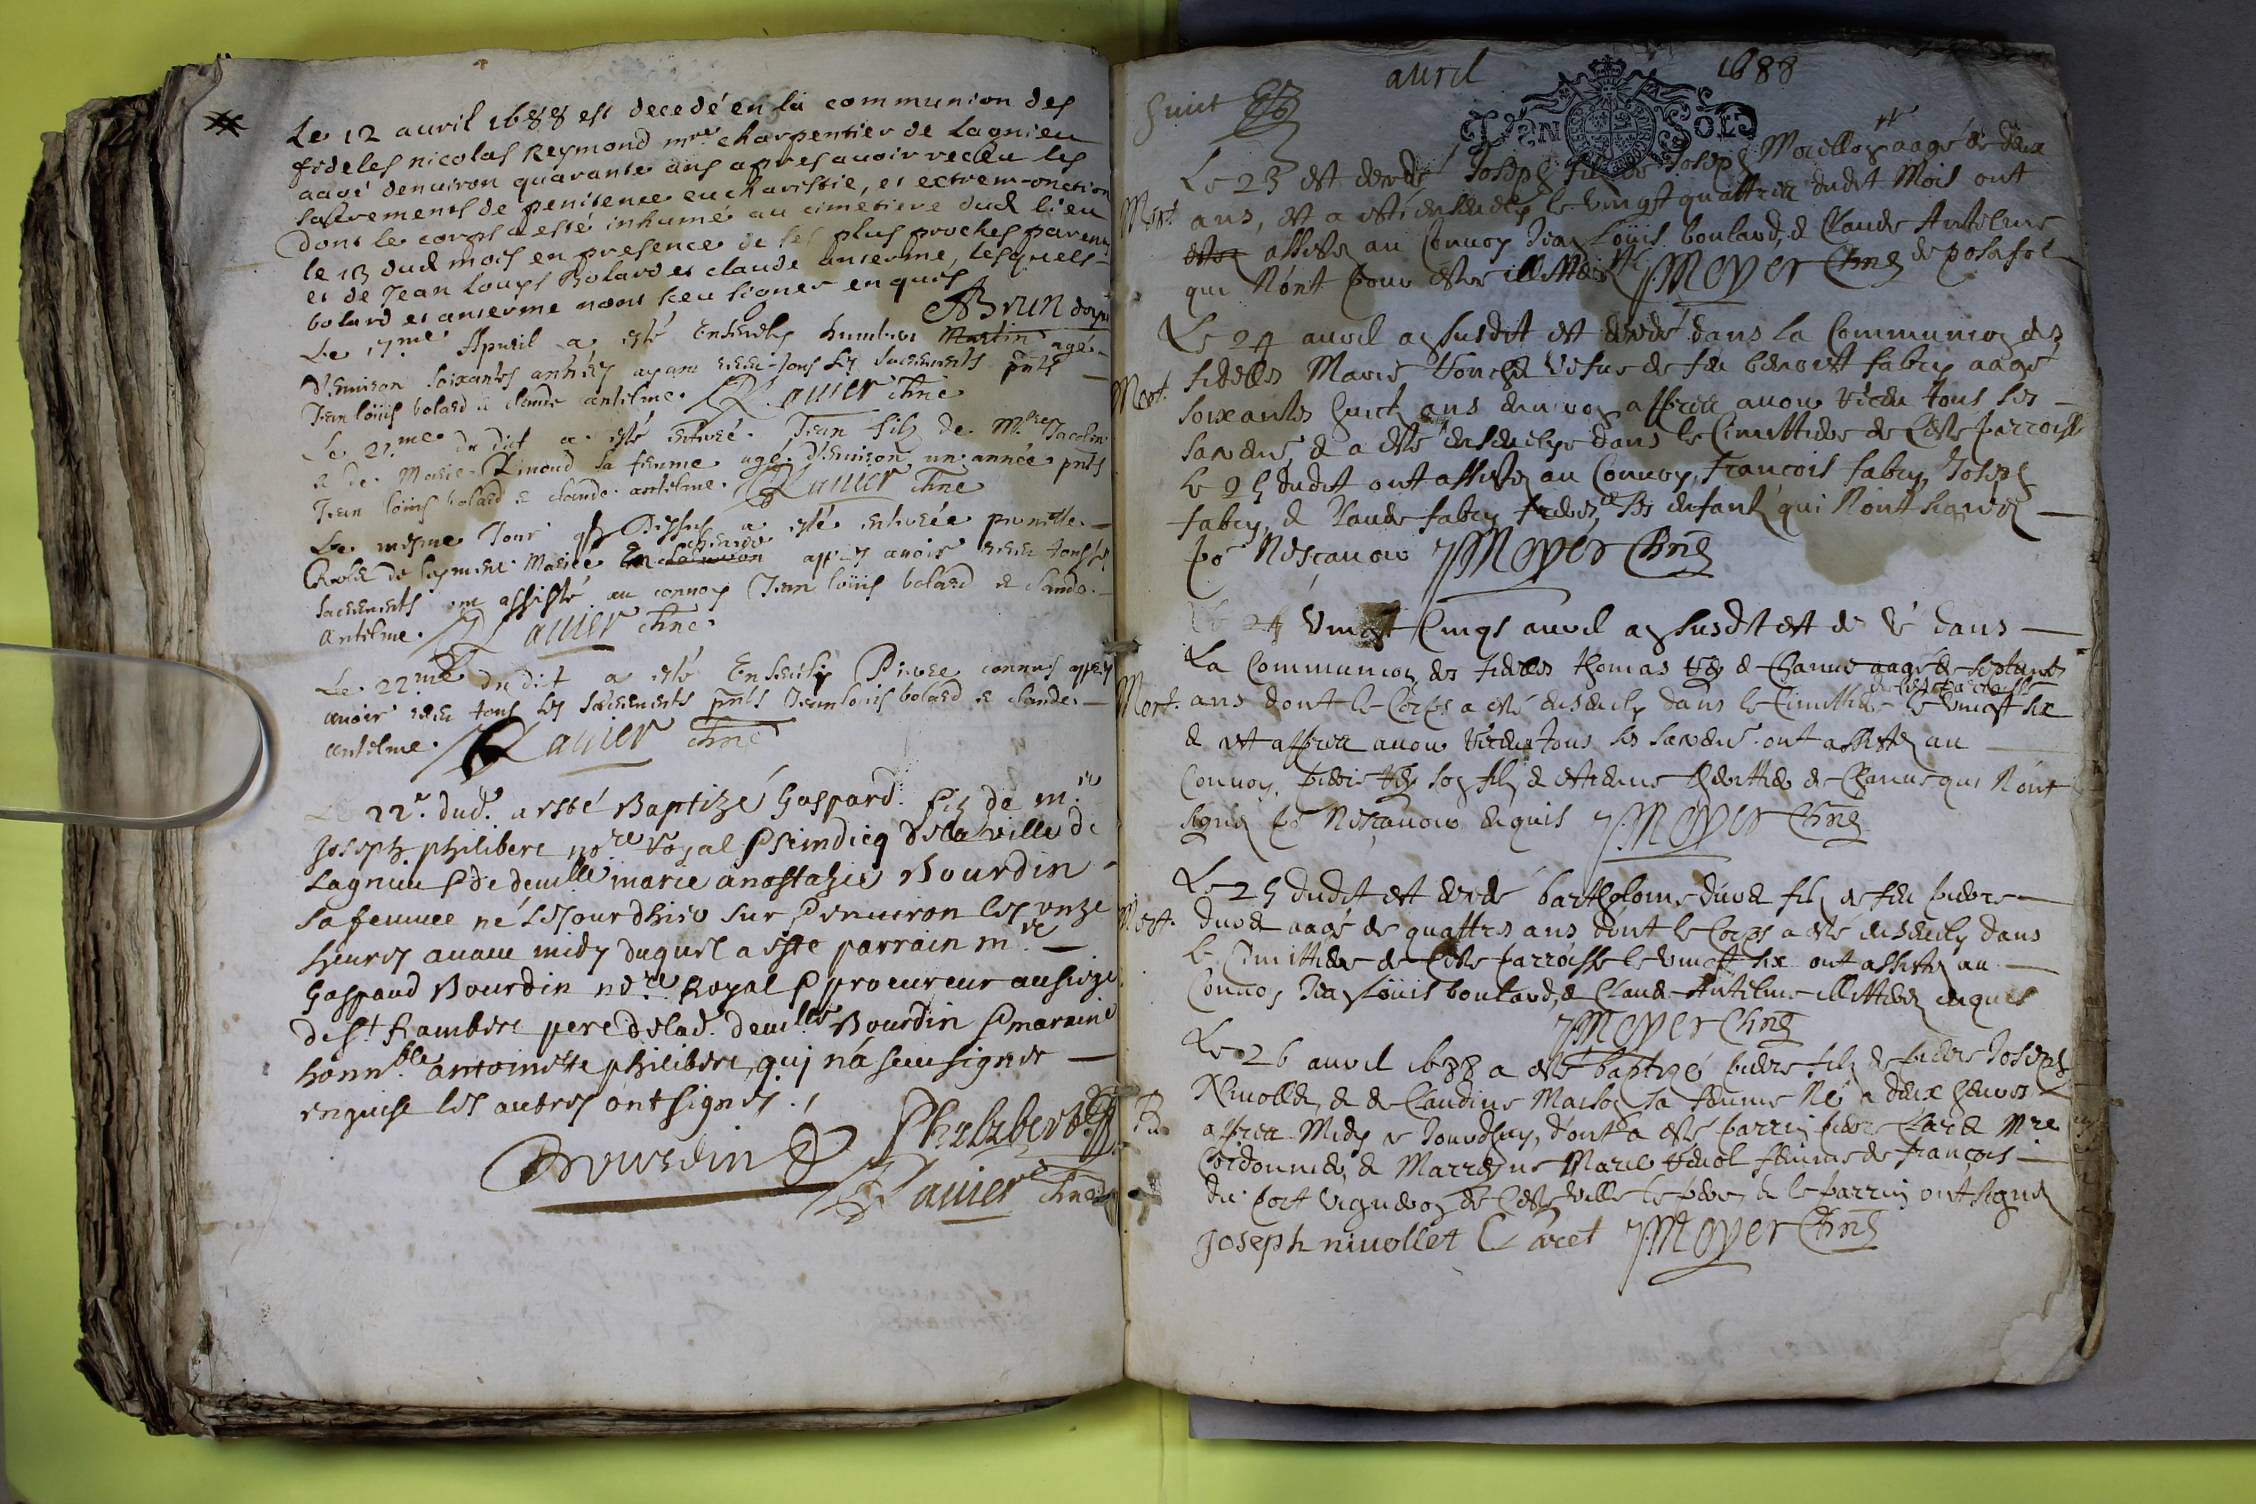 Le 12 auril 1688 est decedé en la communion des
fideles nicolas Reymond mre charpentier de Lagnieu
aagé denuiron quarante ans apres auoir receu les
sacrements de penitence eucharistie, et extrem-onction
dont le corps a esté inhumé au cimetiere dud lieu
le 13 dud mois en presence de ses plus proches parens
et de Jean Louys Bolard et claude anserme, lesquels
bolard et anserme n'ont sceu signer enquis
ABrun
Le 17me Apuril a esté Enseuely humbert Martin agé
d'Enuiron soixantes années ayant receu tous les sacrements pnts
Jean loüis bolard & claude antelme. Rauier chne
Le 21me du dict a esté enterré Jean fils de Mre Jacolin
& de Marie Rimond sa femme agé d'Enuiron un année pnts
Jean loüis bolard & claude antelme. Rauier chne
Le mesme Jour q dessus a esté enterrée prunette
Marie apres auoir receu tous les
sacrements ont assisté au conuoy Jean loüis bolard & claude
antelme. Rauier chne.
Le 22me du dict a esté Enseuely Pierre connus apres
auoir receu tous les sacrements pnts Jean louis bolard & claude
antelme. Rauier chne
Le 22e. dud. a esté Baptizé Gaspard. filz de mre
Joseph philibert nore Royal & scindicq de la ville de
Lagnieu & de deuelle marie anastazie Bourdin
sa femme né Lejourdhuy sur & enuiron les unze
heures auant midy duquel a este parrain mre
Gaspard Bourdin nore Royal & procureur au siege
de st Rambert pere de lad. deuelle Bourdin & marraine
honnble antoinette philibert, quj n'a sceu signer
enquise les autres ont signés.
Philibert
Bourdin
Rauier chne
auril 1688
huict
VEN SOLS
Le 23 est decedé Joseph fils de Joseph Morellon aagé de deux
Mort. ans, et a esté enseuely le vingt quattrie dudit Mois ont
esten assistez au Conuoy Jean Loüis boulard, & Claude Antelme
qui N'ont pour estre illitterez J Moyer Chne de posafol
Le 24 auril an susdit est decedé dans la Communion des
Mort. fidelles Marie vefue de feu benoist fabry aagé
soixantes huict ans enuiron apprez auoir receu tous ses
sacrems, & a esté enseuelye dans le Cimittiere de Ceste parroisse
le 25 dudit ont assistez au Conuoy, francois fabry, Joseph
fabry, & Claude fabry freres, ses enfants qui N'ont signez
po Nesçauoir J Moyer Chne
Le 24 vingt Cinqs auril an susdit est de dé dans
La Communion des fidelles thomas Rey de Charue aagé de septante
Mort. ans dont le Corps a esté enseuely dans le Cimittiere le vingt six
& est apprez auoir receu tous ses sacrems ont assistez au
Conuoy, pierre Rey son fils, & de Charue qui N'ont
signez po Nesçauoir enquis J Moyer Chne
Le 25 dudit est decedé bartholome duret fils de feu pierre
Mort. duret aagé de quattres ans dont le Corps a esté enseuely dans
le Cimittiere de Ceste parroisse le vingt six ont assistez au
Conuoy Jean Loüis boulard, & Claude Antelme illitterez enquis
J Moyer Chne
Le 26 auril 1688 a esté baptizé pierre fils de pierre Joseph
Niuollet, & de Claudine Marlon sa femme Né a deux heures
Ba apprez Midy de Jourdhuy, dont a esté parrin pierre Caret Mre
Cordonnier, & Marreyne Marie Reuol femme de françois
du port vigneron de Ceste ville le pere, & le parrin ont signez
Joseph niuollet Caret J Moyer Chne